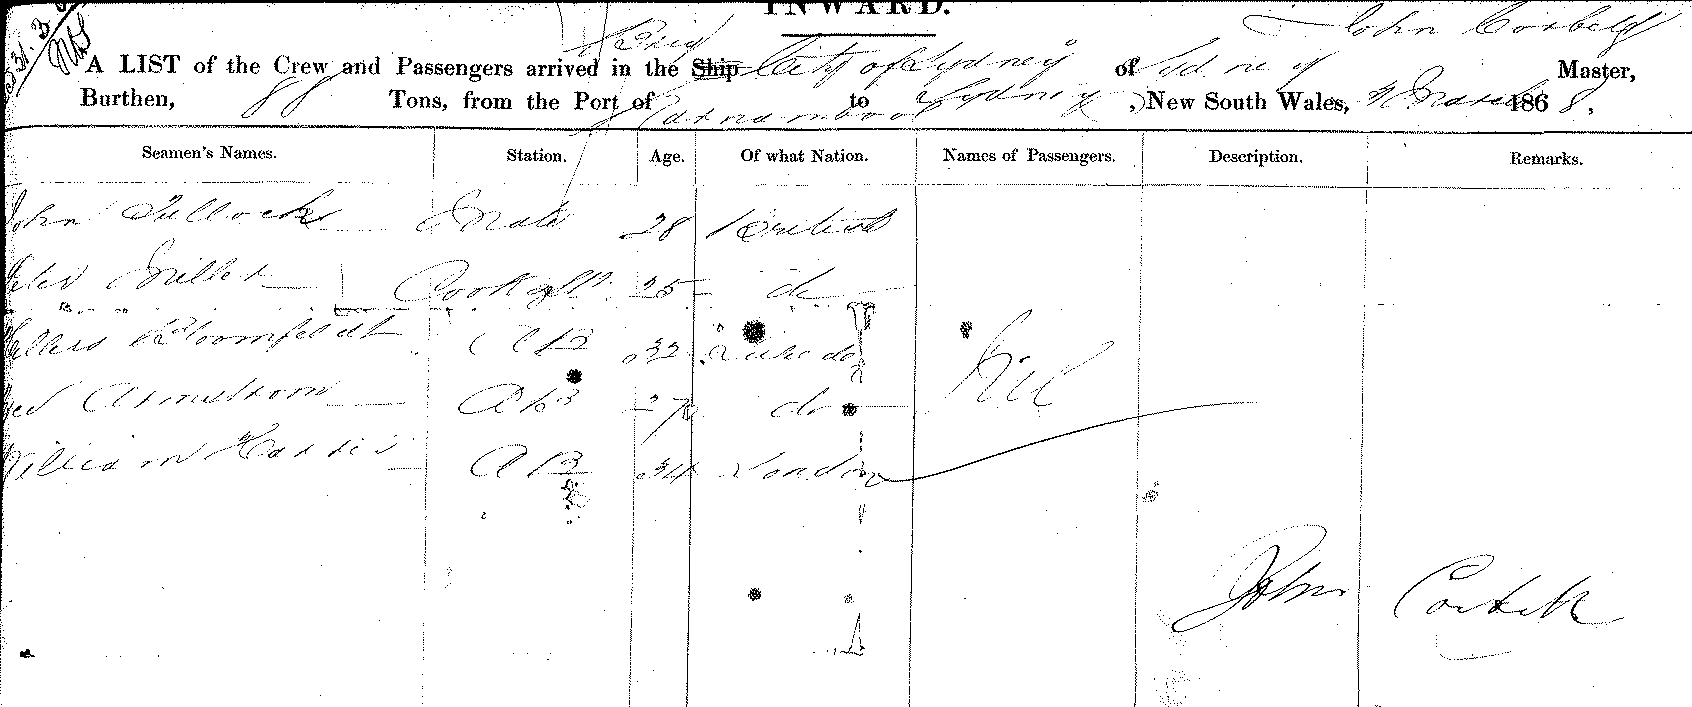 INWARD.
John Corbett
Brig
A LIST of the Crew and Passengers arrived in the Ship City of Sydney of Sydney Master,
Burthen, 88 Tons, from the Port of to Sydney, New South Wales, March 1868.
Seamen's Names. Station. Age. Of what Nation. Names of Passengers. Description. Remarks.
John Tullock Mate 28 British
Peter Miller Cook & 25 do
Bloomfeldt AB 32
Armstrom AB 27 do
William Harris AB 34 London
Nil
John Corbett